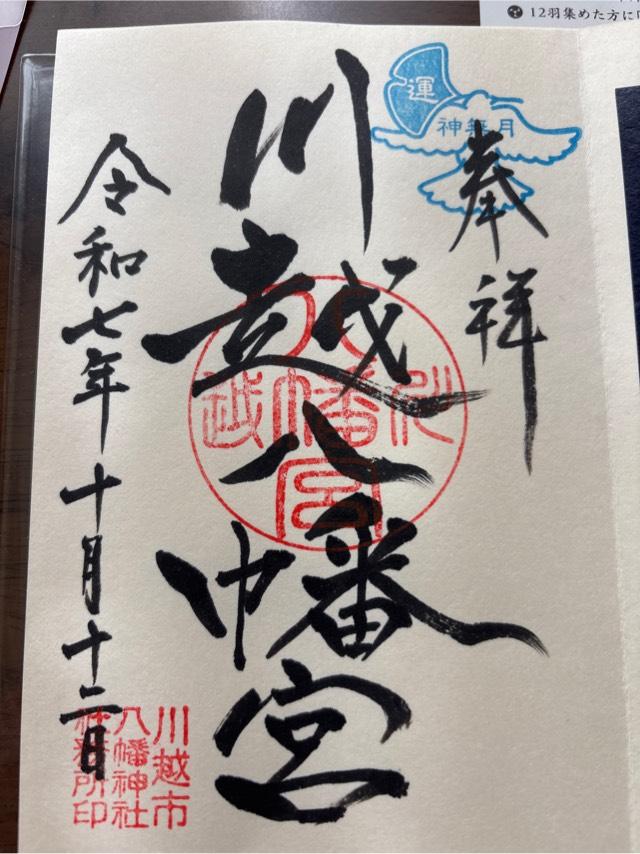 12羽集めた方に
運
神無月
奉祥
川越八幡宮
八幡宮
川越
令和七年十月十二日
川越市
八幡神社
社務所印